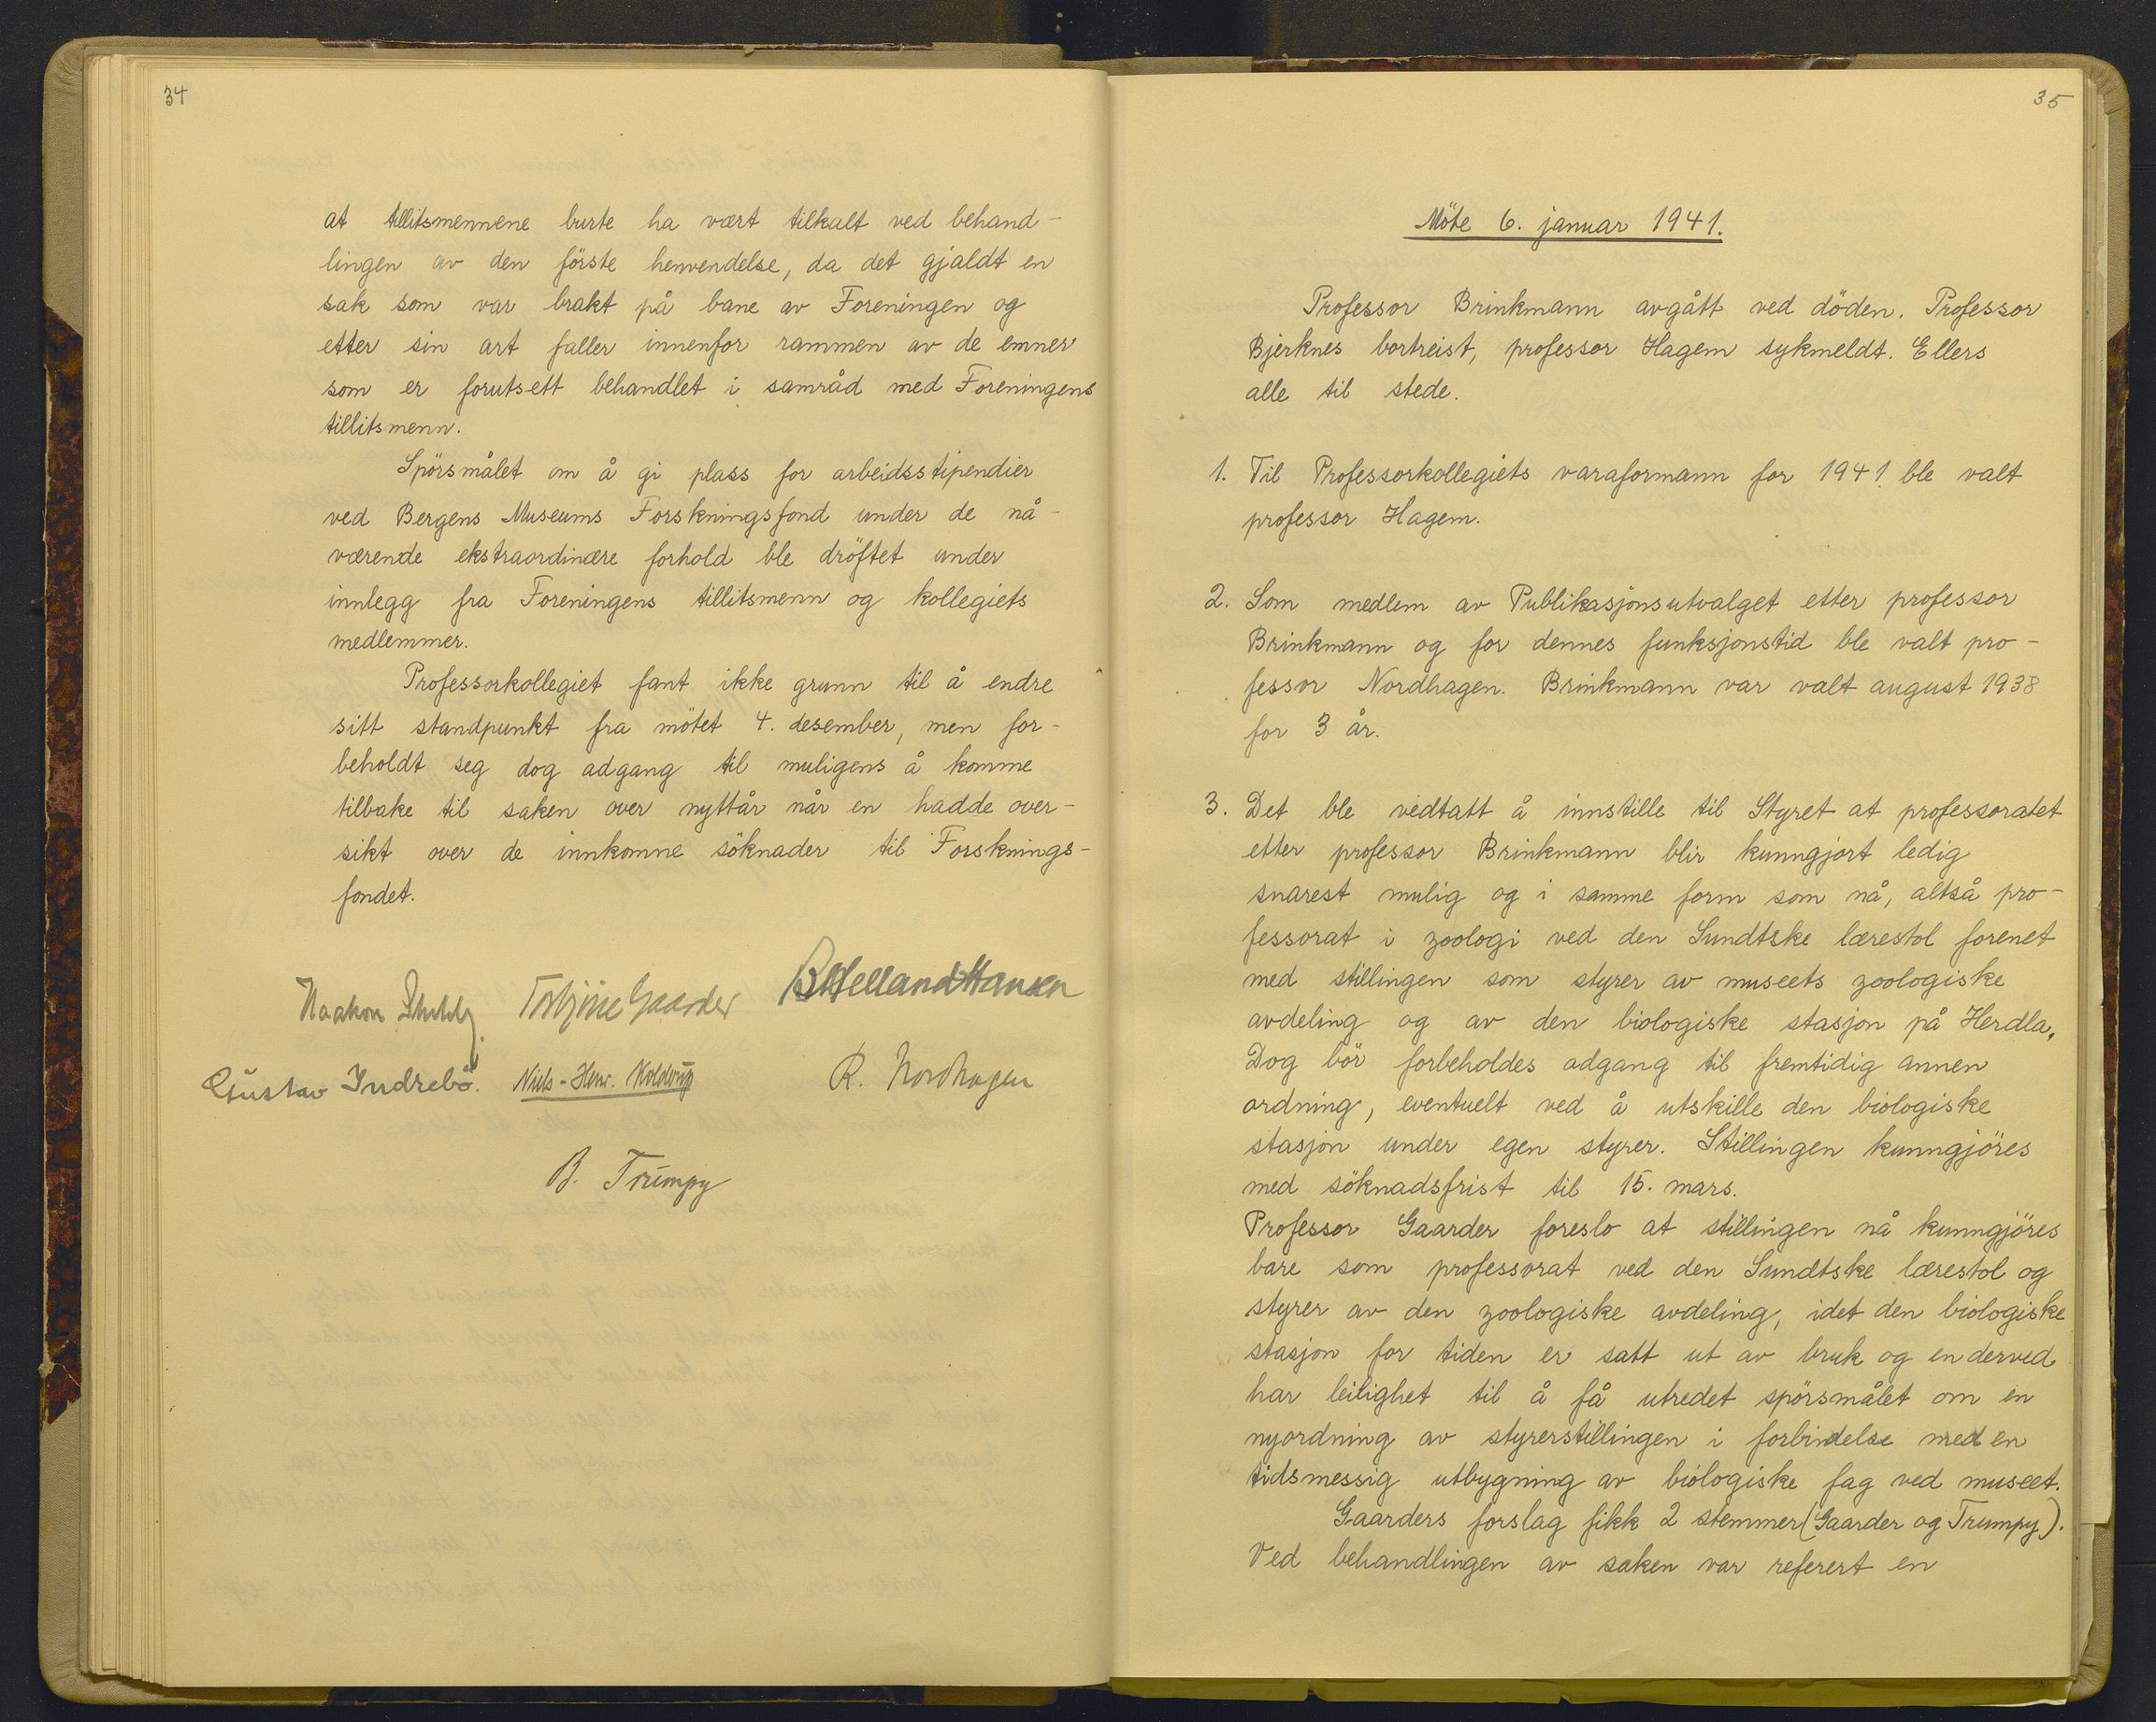 34
at tillitsmennene burte ha vært tilkalt ved behand-
lingen av den förste henvendelse, da det gjaldt en
sak som var brakt på bane av Foreningen og
etter sin art faller innenfor rammen av de emner
som er forutsett behandlet i samråd med Foreningens
tillitsmenn.
Spörsmålet om å gi plass for arbeidsstipendier
ved Bergens Museums Forskningsfond under de nå-
værende ekstraordinære forhold ble dröftet under
innlegg fra Foreningens tillitsmenn og kollegiets
medlemmer.
Professorkollegiet fant ikke grunn til å endre
sitt standpunkt fra mötet 4. desember, men for-
beholdt seg dog adgang til muligens å komme
tilbake til saken over nyttår når en hadde over-
sikt over de innkomne söknader til Forsknings-
fondet.
Haakon Torbjörn Gaarder B Helland Hansen
Gustav Indrebö. Niels-Henr. Kolderup R. Nordhagen
B. Trumpy
35
Möte 6. januar 1941.
Professor Brinkmann avgått ved döden. Professor
Bjerknes bortreist, professor Hagem sykmeldt. Ellers
alle til stede.
1. Til Professorkollegiets varaformann for 1941 ble valt
professor Hagem.
2. Som medlem av Publikasjonsutvalget etter professor
Brinkmann og for dennes funksjonstid ble valt pro-
fessor Nordhagen. Brinkmann var valt august 1938
for 3 år.
3. Det ble vedtatt å innstille til Styret at professoratet
etter professor Brinkmann blir kunngjort ledig
snarest mulig og i samme form som nå, altså pro-
fessorat i zoologi ved den Sundtske lærestol forenet
med stillingen som styrer av museets zoologiske
avdeling og av den biologiske stasjon på Herdla.
Dog bör forbeholdes adgang til fremtidig annen
ordning, eventuelt ved å utskille den biologiske
stasjon under egen styrer. Stillingen kunngjöres
med söknadsfrist til 15. mars.
Professor Gaarder foreslo at stillingen nå kunngjöres
bare som professorat ved den Sundtske lærestol og
styrer av den zoologiske avdeling, idet den biologiske
stasjon for tiden er satt ut av bruk og en derved
har leilighet til å få utredet spörsmålet om en
nyordning av styrerstillingen i forbindelse med en
tidsmessig utbygning av biologiske fag ved museet.
Gaarders forslag fikk 2 stemmer (Gaarder og Trumpy).
Ved behandlingen av saken var referert en